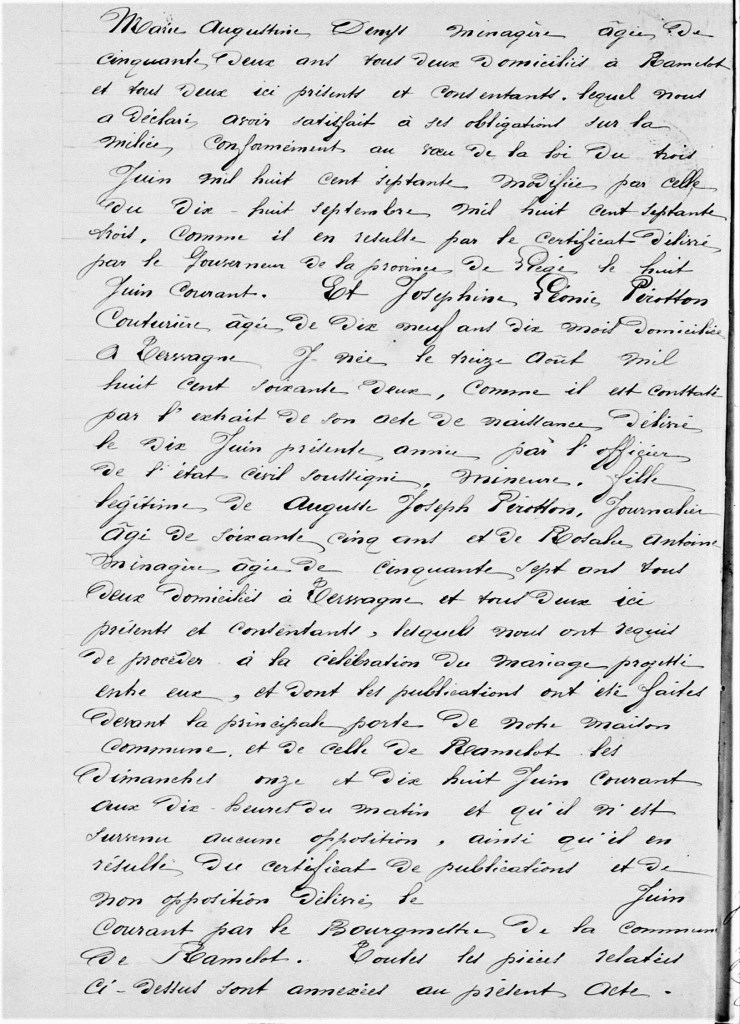 Marie Augustine Denys ménagère âgée de
cinquante deux ans tous deux domiciliés à Ramelot
et tous deux ici présents et consentants. lequel nous
a déclaré avoir satisfait à ses obligations sur la
milice conformément au vœu de la loi du trois
Juin mil huit cent septante modifiée par celle
du dix-huit septembre mil huit cent septante
trois, comme il en résulte par le certificat délivré
par le Gouverneur de la province de Liége le huit
Juin courant. Et Josephine Léonie Pirotton
Couturière âgée de dix neuf ans dix mois domiciliée
à Terwagne Y née le treize Août mil
huit cent soixante deux, comme il est constaté
par l'extrait de son acte de naissance délivré
le dix Juin présente année par l'officier
de l'état civil soussigné, mineure, fille
legitime de Auguste Joseph Pirotton, Journalier
âgé de soixante cinq ans et de Rosalie Antoine
Ménagère âgée de cinquante sept ans tous
deux domiciliés à Terwagne et tous deux ici
présents et consentants, lesquels nous ont requis
de procéder à la célébration du mariage projetté
entre eux, et dont les publications ont été faites
devant la principale porte de notre maison
commune, et de celle de Ramelot les
dimanches onze et dix huit Juin courant
aux dix-heures du matin et qu'il n'est
survenu aucune opposition, ainsi qu'il en
résulte du certificat de publications et de
non opposition délivré le Juin
courant par le Bourgmestre de la commune
de Ramelot. Toutes les pièces relatées
ci-dessus sont annexées au présent acte.